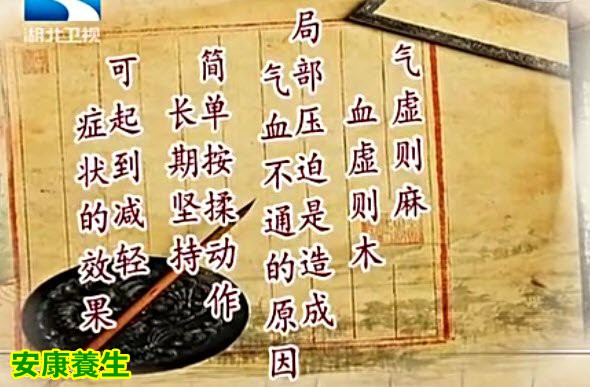 湖北卫视
气虚则麻
血虚则木
局部压迫是造成
气血不通的原因
简单按揉动作
长期坚持
可起到减轻
症状的效果
安康養生